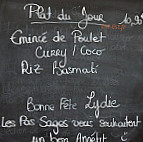 Plat du Jour 10,95
Emincé de Poulet
Curry / Coco
Riz Basmati
Bonne Fête Lydie
Les Pas Sages vous souhaitent
un bon Appétit